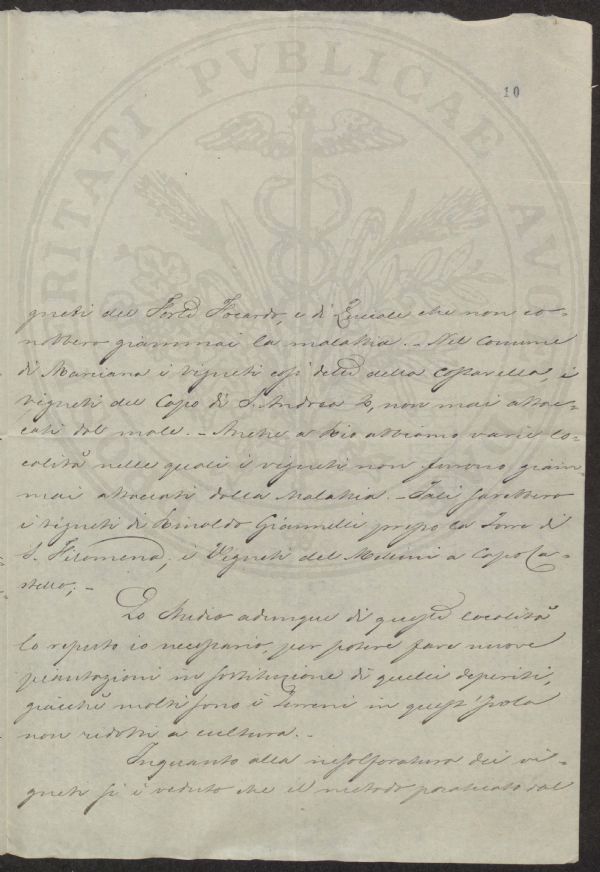 PROSPERITATI PVBLICAE AVGENDAE
10
gneti del Forte Focardo, e di Zuccale che non co-
nobbero giammai la malattia. - Nel Comune
di Marciana i Vigneti così detti della Cotarella, i
vigneti del Capo di S. Andrea &, non mai attac-
cati dal male. - Anche a Rio abbiamo varie lo-
calità nelle quali i vigneti non furono giam-
mai attaccati dalla Malattia. - Tali sarebbero
i vigneti di Rinaldo Giannelli presso la Torre di
S. Filomena, i Vigneti del Mellini a Capo Ca-
stello; -
Lo Studio adunque di queste località
lo reputo io necessario, per potere fare nuove
piantazioni in sostituzione di quelli deperiti,
giacchè molti sono i Terreni in quest'Isola
non ridotti a cultura. -
Inquanto alla insolforatura dei vi-
gneti si è veduto che il metodo praticato dal